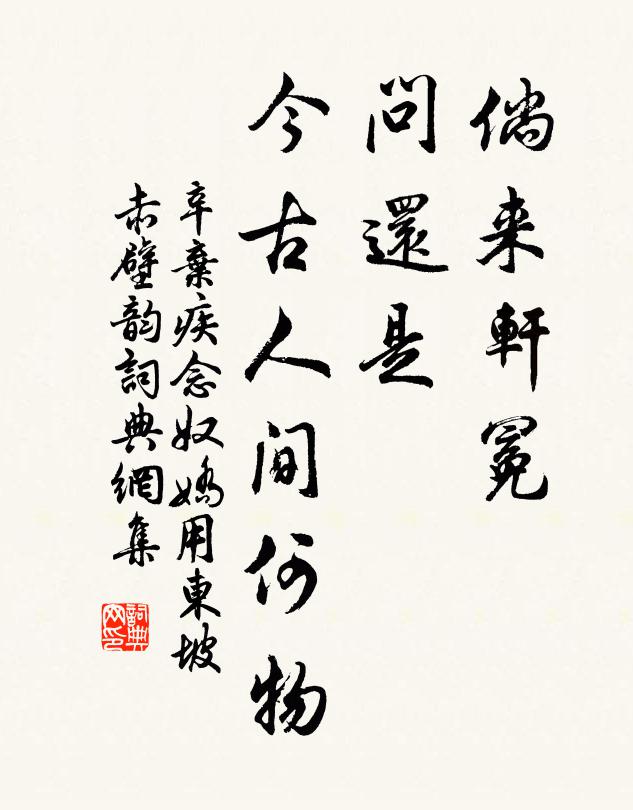 倘来軒冕
問還是
今古人間何物
辛棄疾念奴嬌用東坡
赤壁韵詞典網集
詞典
网印